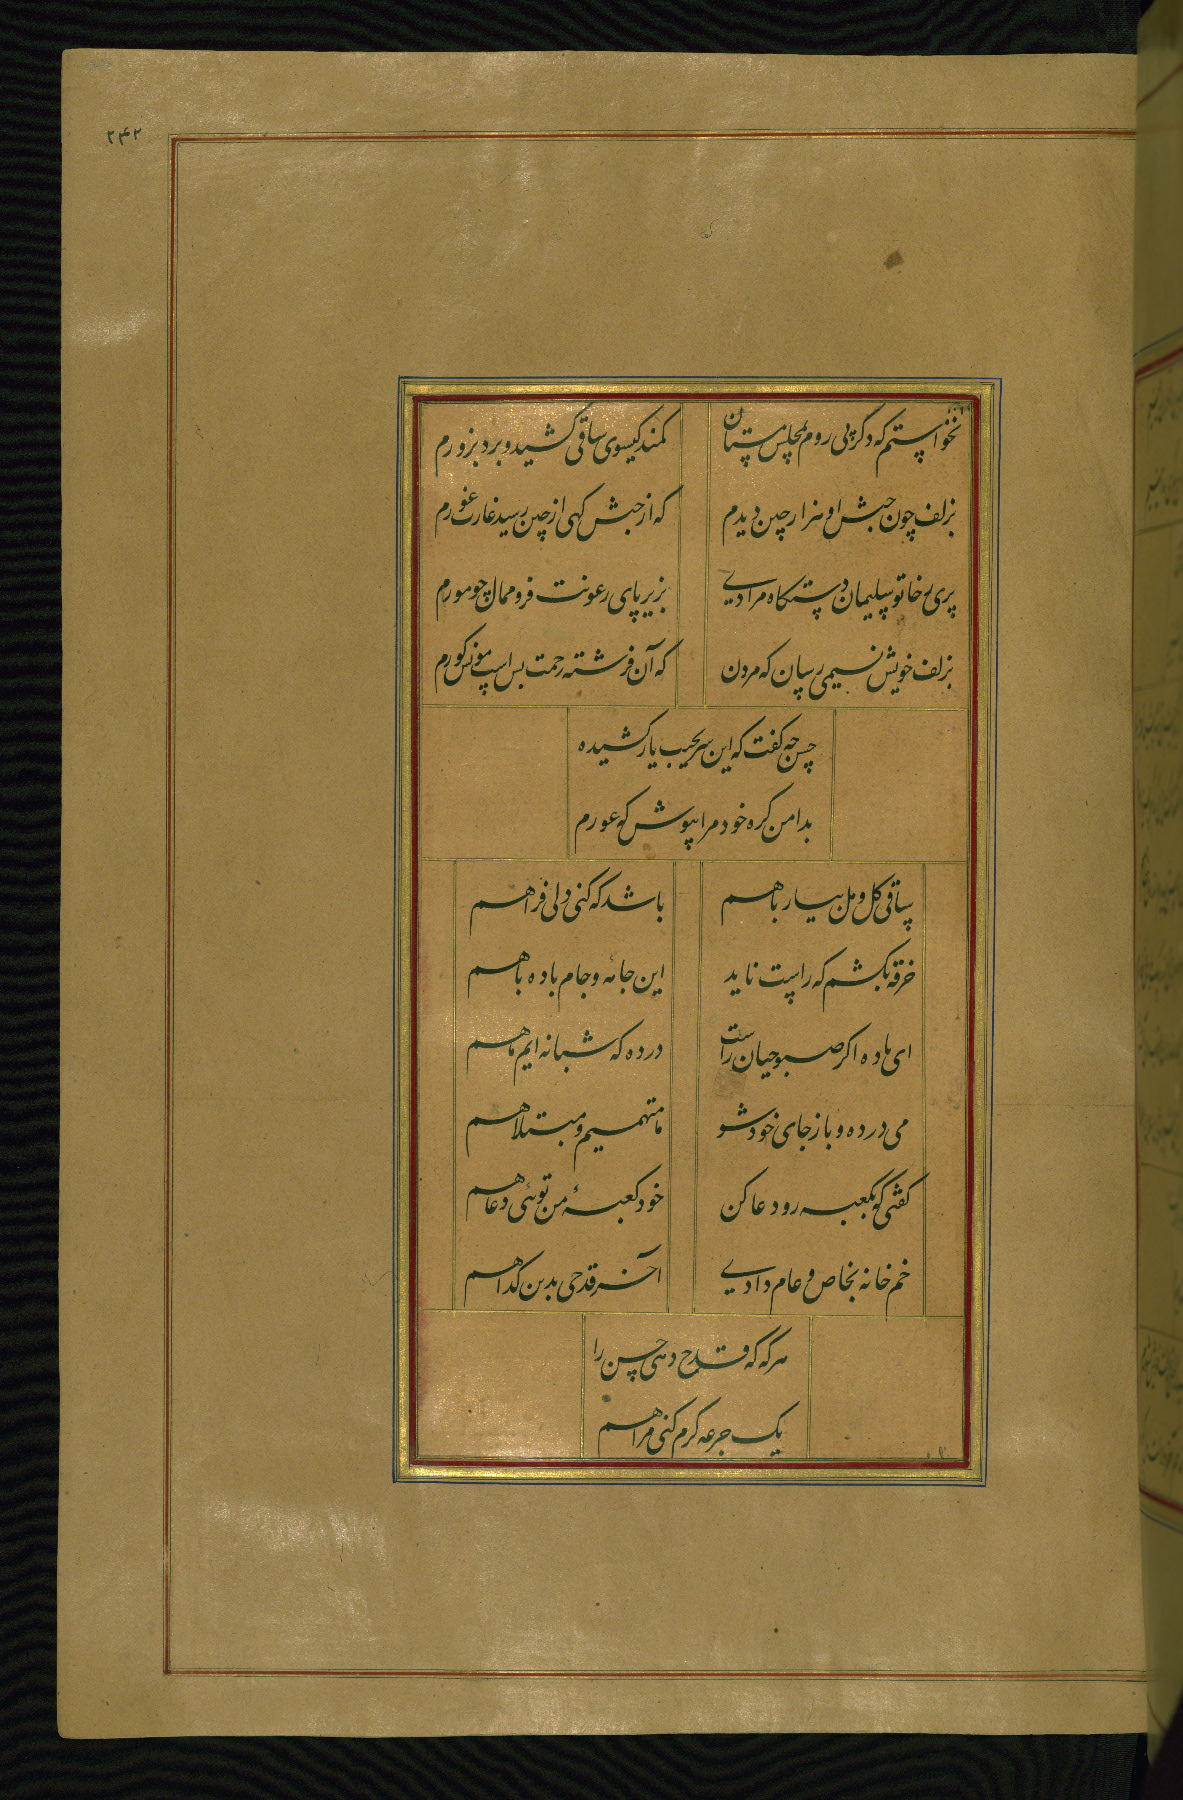 ۲۴۲
نخواستم که دگر پی روم بمجلس مستان
کمند گیسوی ساقی کشید و برد بزورم
بزلف چون حبش او هزار چین دیدم
که از حبش کهی از چین رسید غارت غورم
پری رخا تو سلیمان دستگاه مرادی
بزیر پای رعونت فرو ممال چو مورم
بزلف خویش نسیمی رسان که مردن
که آن فرشته رحمت بس است مونس گورم
حسن چه گفت که این سر بجیب یار کشیده
بدامن کره خود مرا بپوش که عورم
ساقی گل و مل بیار باهم
باشد که کنی دلی فراهم
خرقه بکشم که راست ناید
این جامه و جام باده باهم
ای باده اگر صبوحیان راست
درده که شبانه ایم ما هم
می درده و باز جای خود شو
ما متهمیم و مبتلا هم
گفتی که بکعبه رو دعا کن
خود کعبهٔ من توئی دعا هم
خم خانه بخاص و عام دادی
آخر قدحی بدین گدا هم
هرگه که قدح دهی حسن را
یک جرعه کرم کنی مرا هم